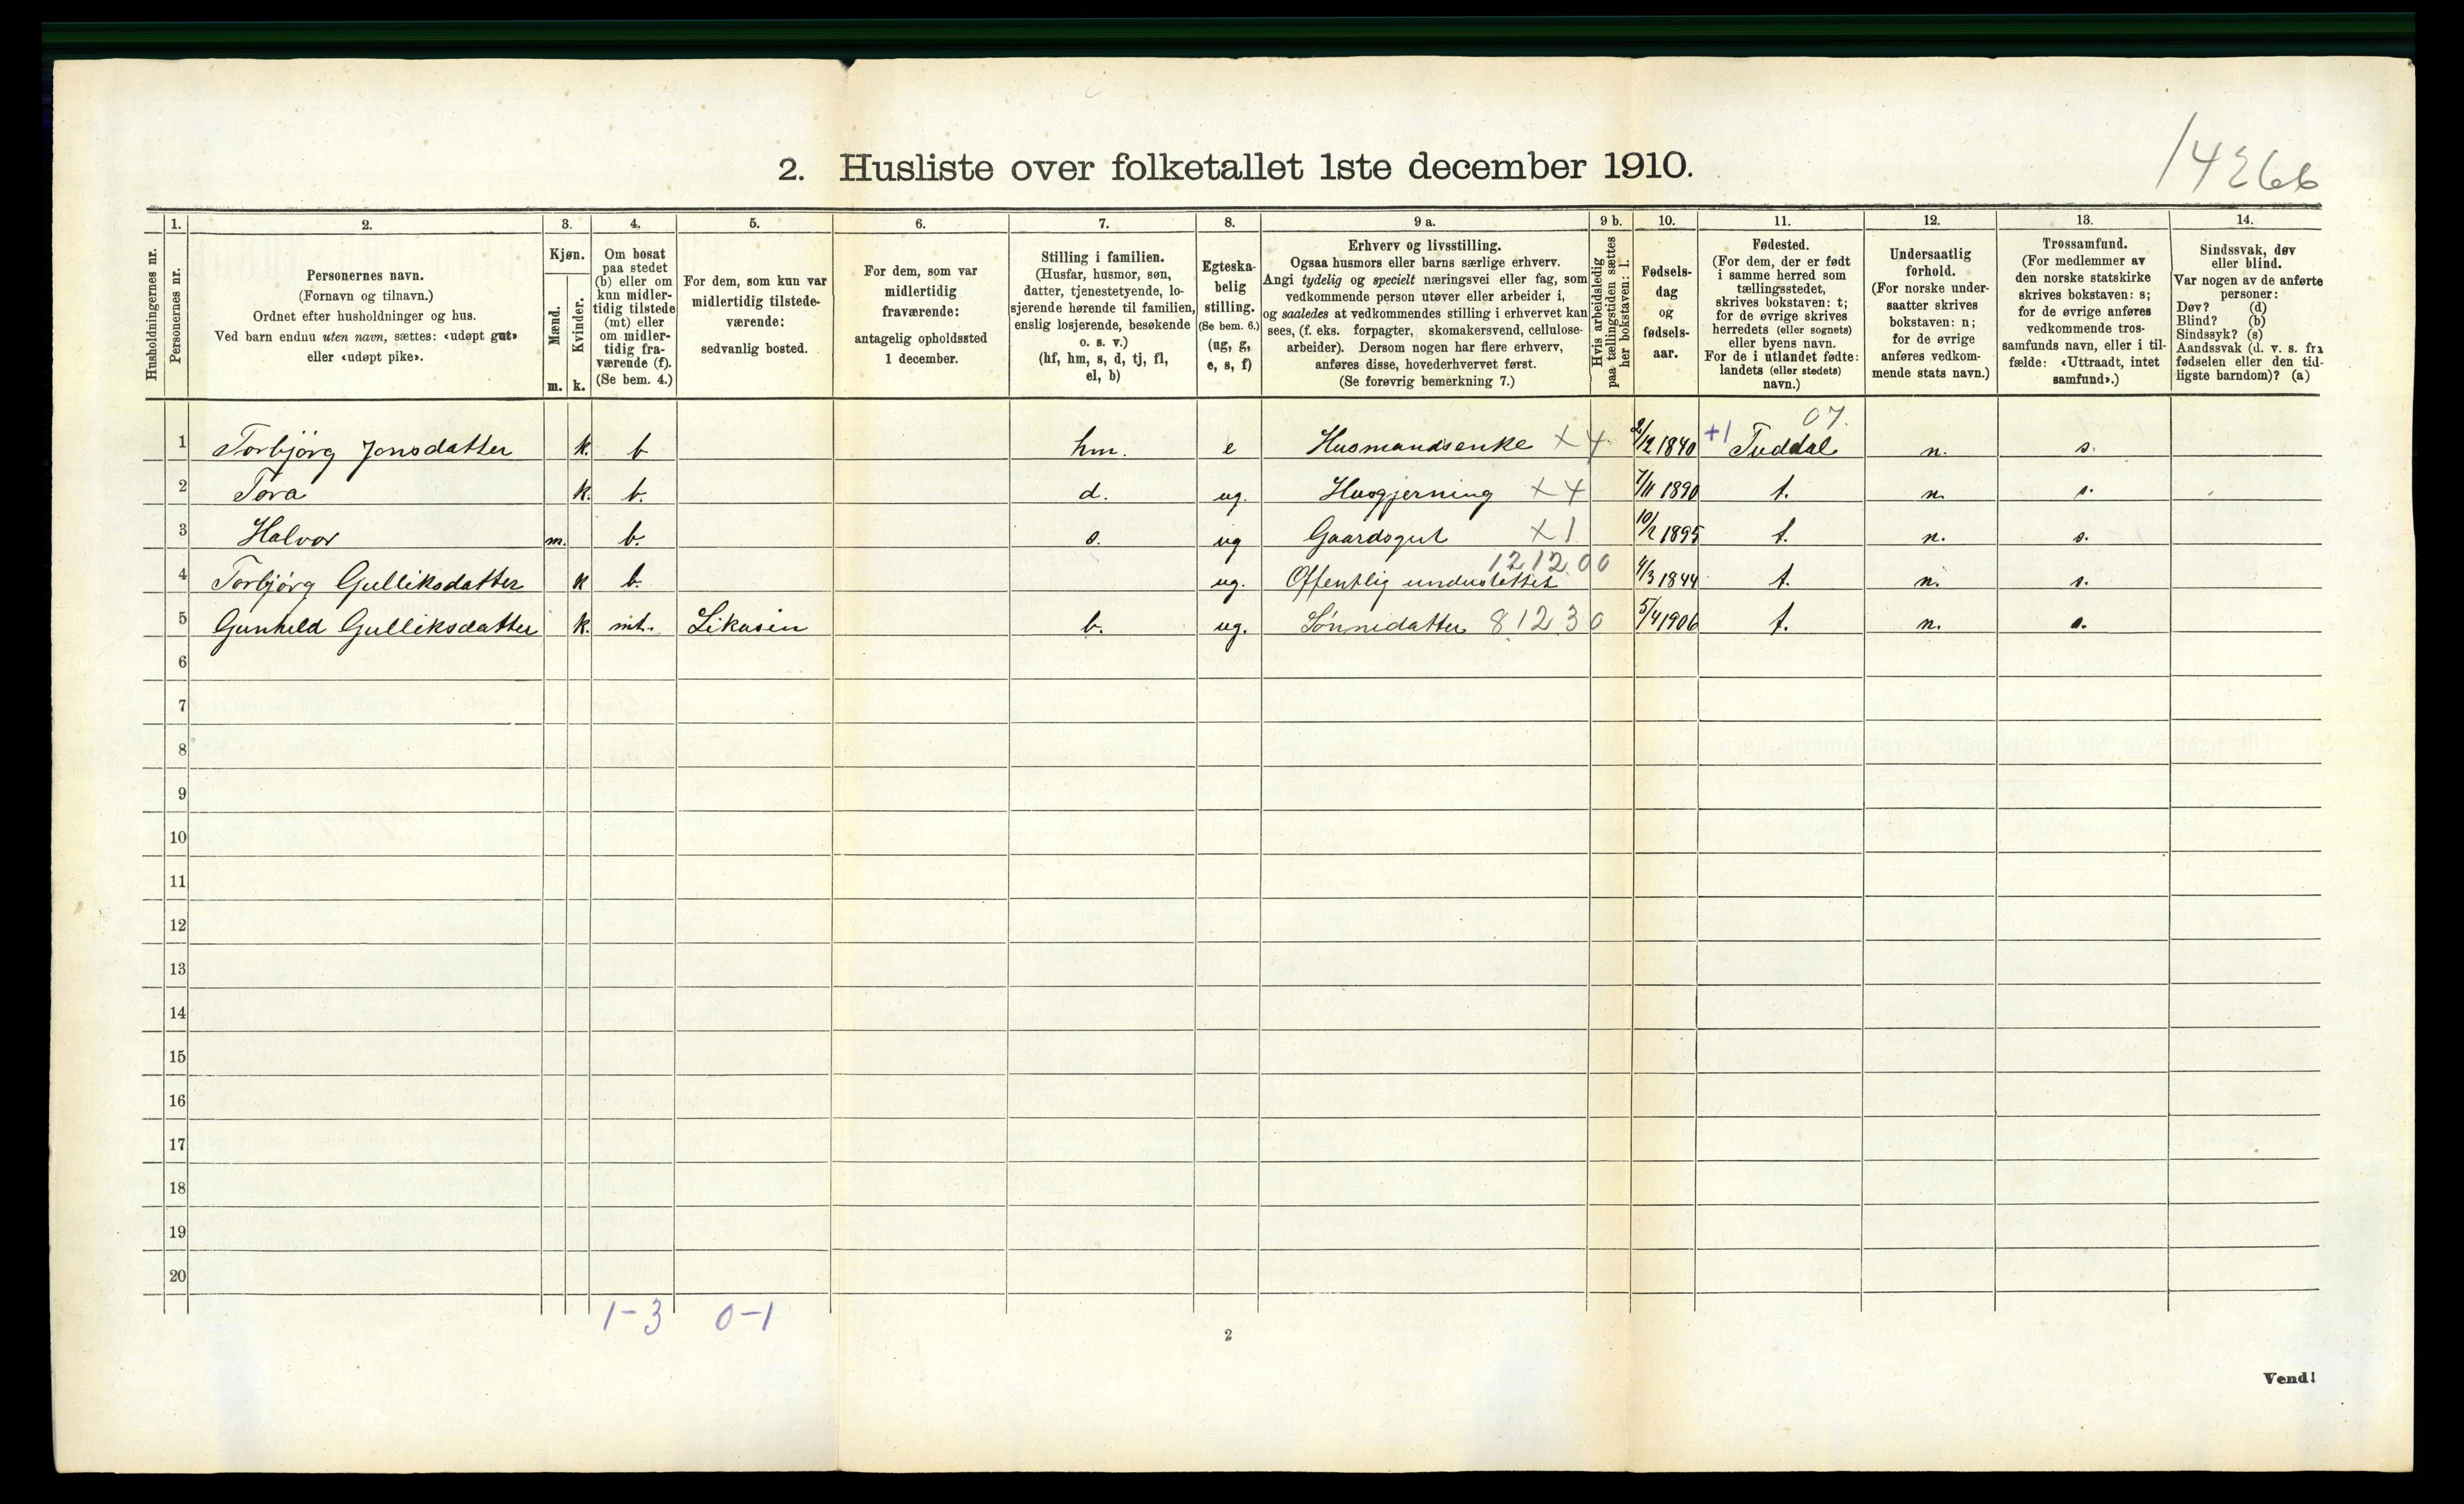 14266
2. Husliste over folketallet 1ste december 1910.
Husholdningernes nr.
1.
Personernes nr.
2.
Personernes navn.
(Fornavn og tilnavn.)
Ordnet efter husholdninger og hus.
Ved barn endnu uten navn, sættes: «udøpt gut»
eller «udøpt pike».
3.
Kjøn.
Mænd.
Kvinder.
m.
k.
4.
Om bosat
paa stedet
(b) eller om
kun midler-
tidig tilstede
(mt) eller
om midler-
tidig fra-
værende (f).
(Se bem. 4.)
5.
For dem, som kun var
midlertidig tilstede-
værende:
sedvanlig bosted.
6.
For dem, som var
midlertidig
fraværende:
antagelig opholdssted
1 december.
7.
Stilling i familien.
(Husfar, husmor, søn,
datter, tjenestetyende, lo-
sjerende hørende til familien,
enslig losjerende, besøkende
o. s. v.)
(hf, hm, s, d, tj, fl,
el, b)
8.
Egteska-
belig
stilling.
(Se bem. 6.)
(ug, g,
e, s, f)
9 a.
Erhverv og livsstilling.
Ogsaa husmors eller barns særlige erhverv.
Angi tydelig og specielt næringsvei eller fag, som
vedkommende person utøver eller arbeider i,
og saaledes at vedkommendes stilling i erhvervet kan
sees, (f. eks. forpagter, skomakersvend, cellulose-
arbeider). Dersom nogen har flere erhverv,
anføres disse, hovederhvervet først.
(Se forøvrig bemerkning 7.)
9 b.
Hvis arbeidsledig
paa tællingstiden sættes
her bokstaven: l.
10.
Fødsels-
dag
og
fødsels-
aar.
11.
Fødested.
(For dem, der er født
i samme herred som
tællingsstedet,
skrives bokstaven: t;
for de øvrige skrives
herredets (eller sognets)
eller byens navn.
For de i utlandet fødte:
landets (eller stedets)
navn.)
12.
Undersaatlig
forhold.
(For norske under-
saatter skrives
bokstaven: n;
for de øvrige
anføres vedkom-
mende stats navn.)
13.
Trossamfund.
(For medlemmer av
den norske statskirke
skrives bokstaven: s;
for de øvrige anføres
vedkommende tros-
samfunds navn, eller i til-
fælde: «Uttraadt, intet
samfund».)
14.
Sindssvak, døv
eller blind.
Var nogen av de anførte
personer:
Døv? (d)
Blind? (b)
Sindssyk? (s)
Aandssvak (d. v. s. fra
fødselen eller den tid-
ligste barndom)? (a)
07.
1 Torbjörg Jonsdatter k. b hm. e Husmandsenke X 4 2/12 1840 +1 Tuddal n. s.
2 Tora k. b. d. ug. Husgjerning X 4 7/11 1890 t. n. s.
3 Halvor m. b. s. ug Gaardsgut X 1 10/2 1895 t. n. s.
121200
4 Torbjörg Gulliksdatter k b. ug. Offentlig understøttet 4/3 1844 t. n. s.
5 Gunhild Gulliksdatter k. mt. Likasin b. ug. Sönnedatter 81230 5/4 1906 t. n. s.
6
7
8
9
10
11
12
13
14
15
16
17
18
19
20
1-3 0-1
2
Vend!